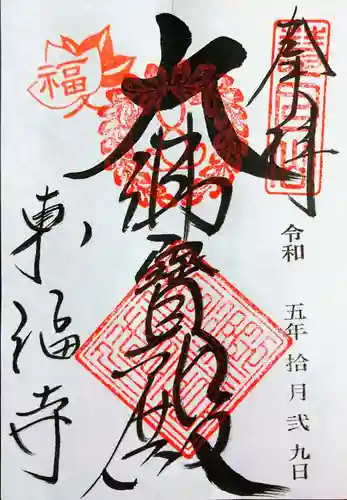 奉拝
令和 五年拾月弐九日
大福寳殿
東福寺
福